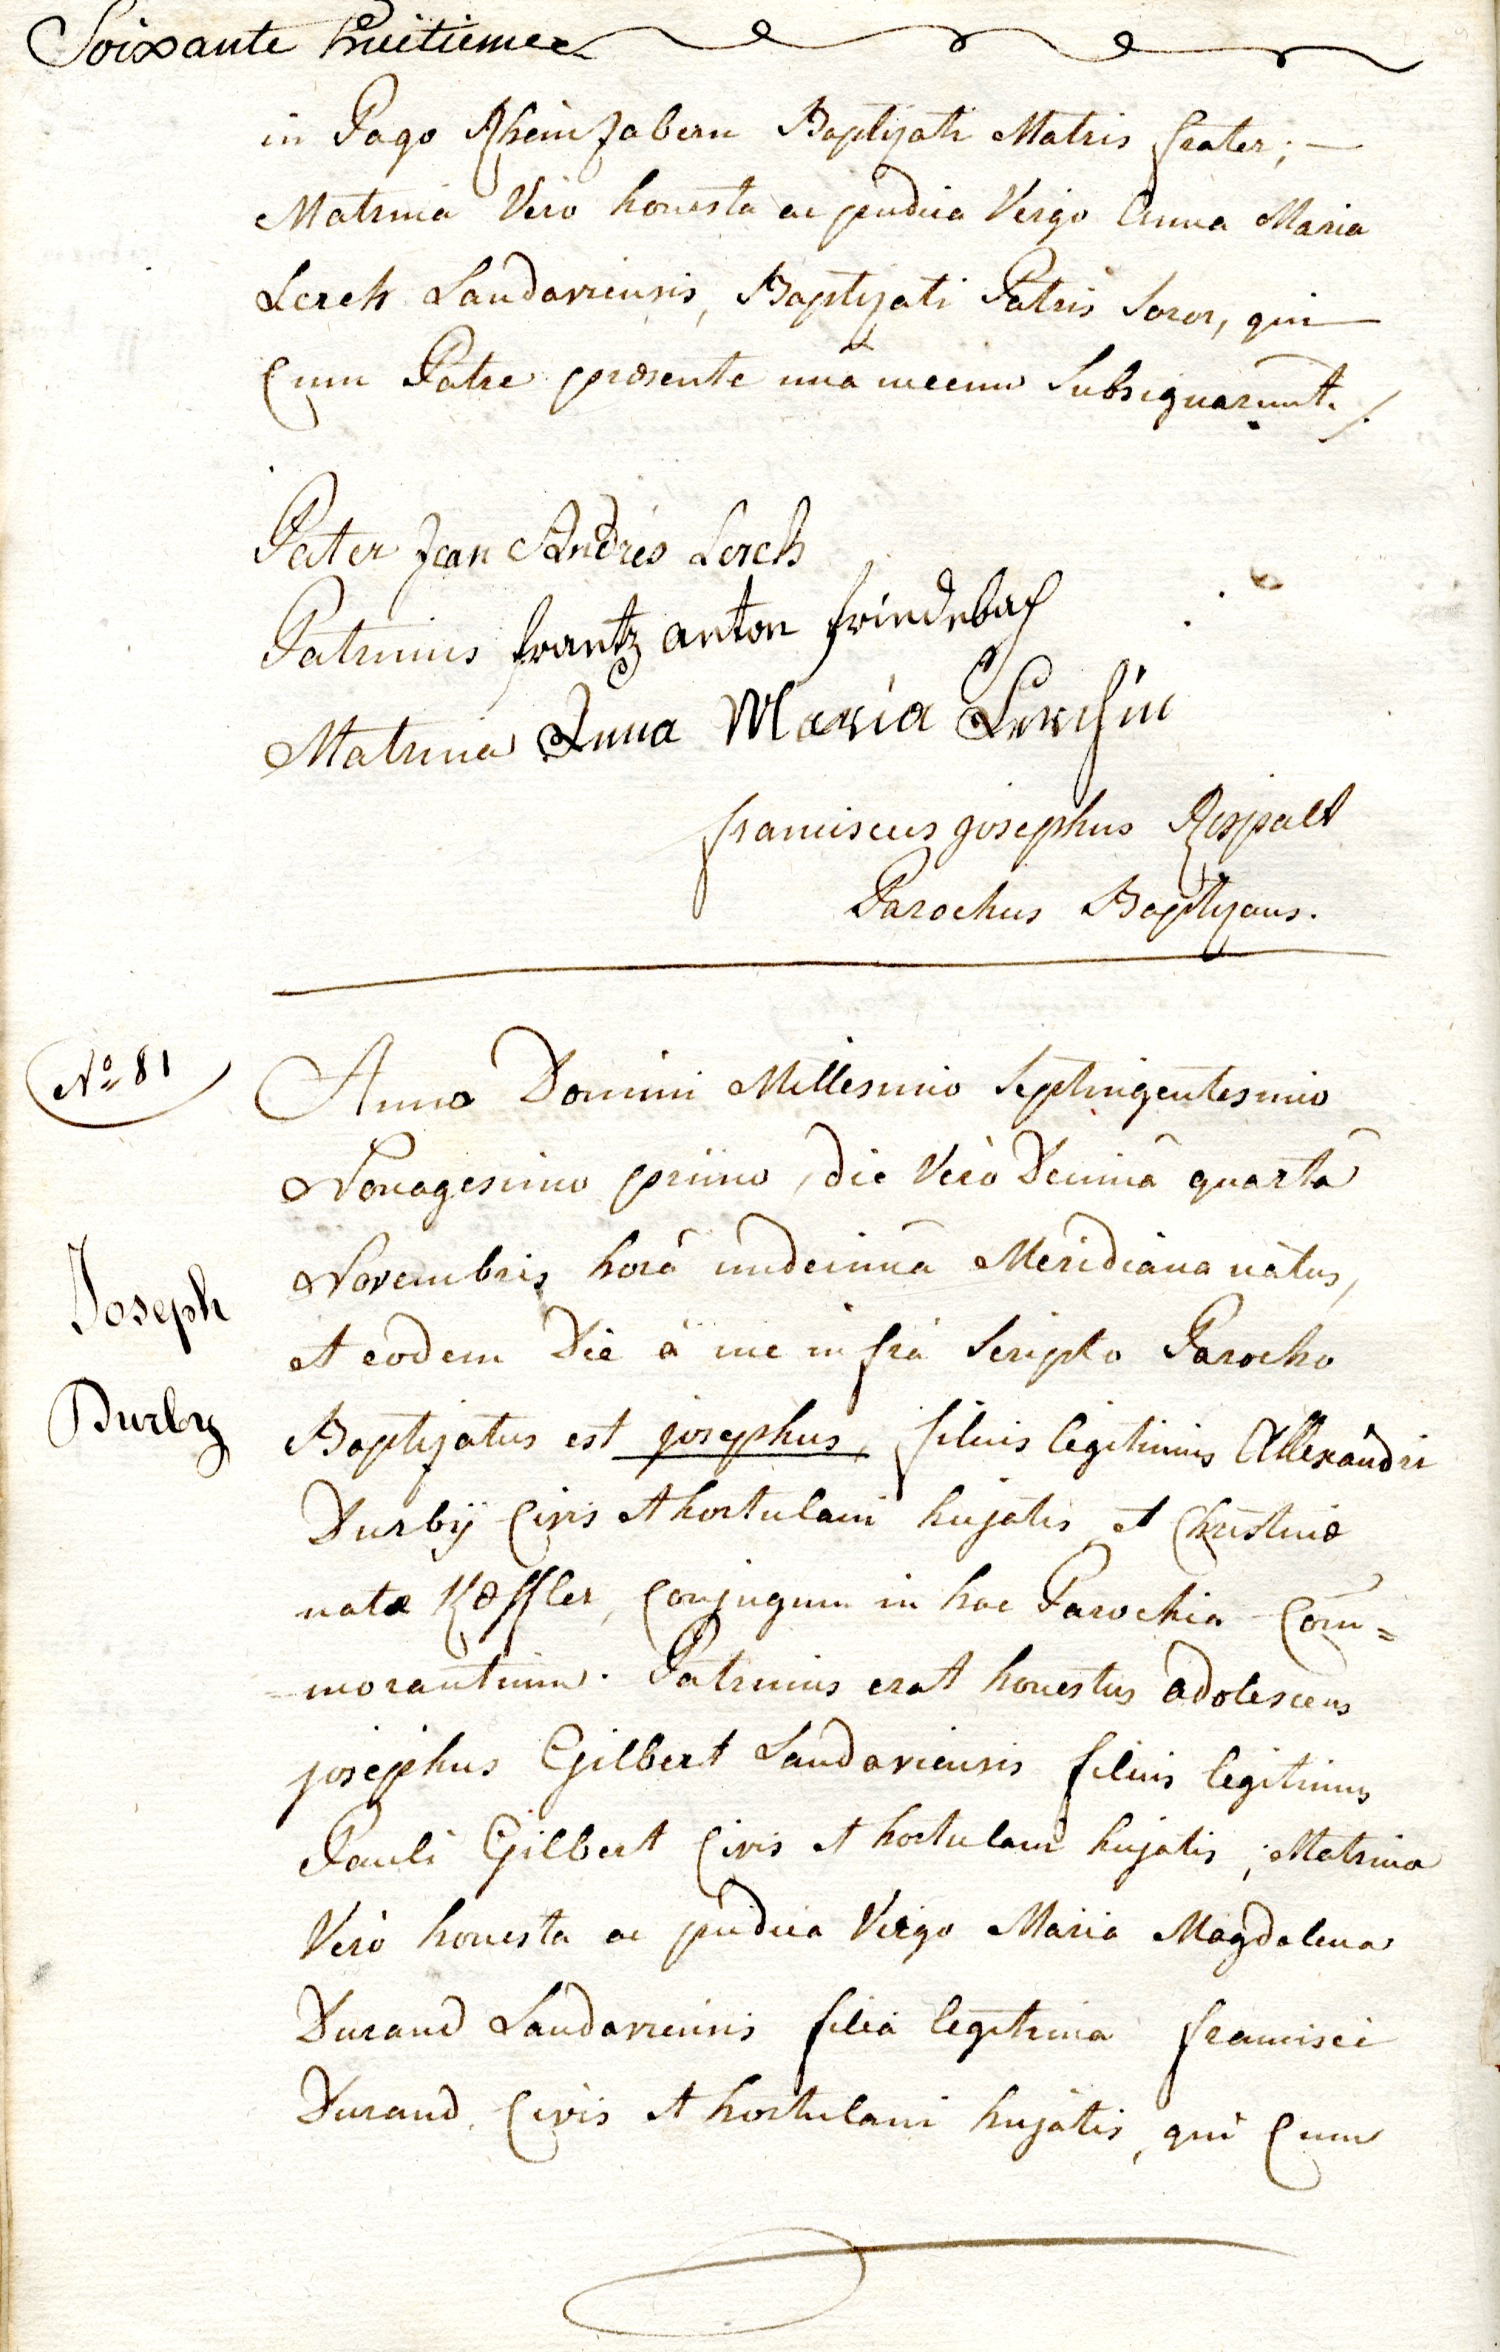 Soixante huitieme
in Pago Rheinzabern Baptizati Matris frater; —
Matrina Vero honesta ac pudica Virgo Anna Maria
Lerch Landaviensis, Baptizati Patris Soror, qui —
Cum Patre præsente unà mecum Subsignarunt. /.
Pater Jean Andrés Lerch
Patrinus frantz anton friedebach
Matrina Anna Maria Lerchin
franciscus josephus Rospalt
Parochus Baptizans.
Nº 81
Anno Domini Millesimo Septingentesimo
Nonagesimo primo, die Verò Decimâ quartâ
Novembris horâ undecimâ Meridiana natus,
et eodem Die à me infrà Scripto Parocho
Joseph
Durby
Baptizatus est josephus, filius legitimus Allexandri
Durbÿ Civis et hortulani hujatis et Christinæ
natæ Kæffler, Conjugum in hac Parochia Com̄=
=morantium. Patrinus erat honestus adolescens
josephus Gilbert Landaviensis filius legitimus
Pauli Gilbert Civis et hortulani hujatis; Matrina
Verò honesta ac pudica Virgo Maria Magdalena
Durand Landaviensis filia legitima francisci
Durand Civis et hortulani hujatis, qui Cum